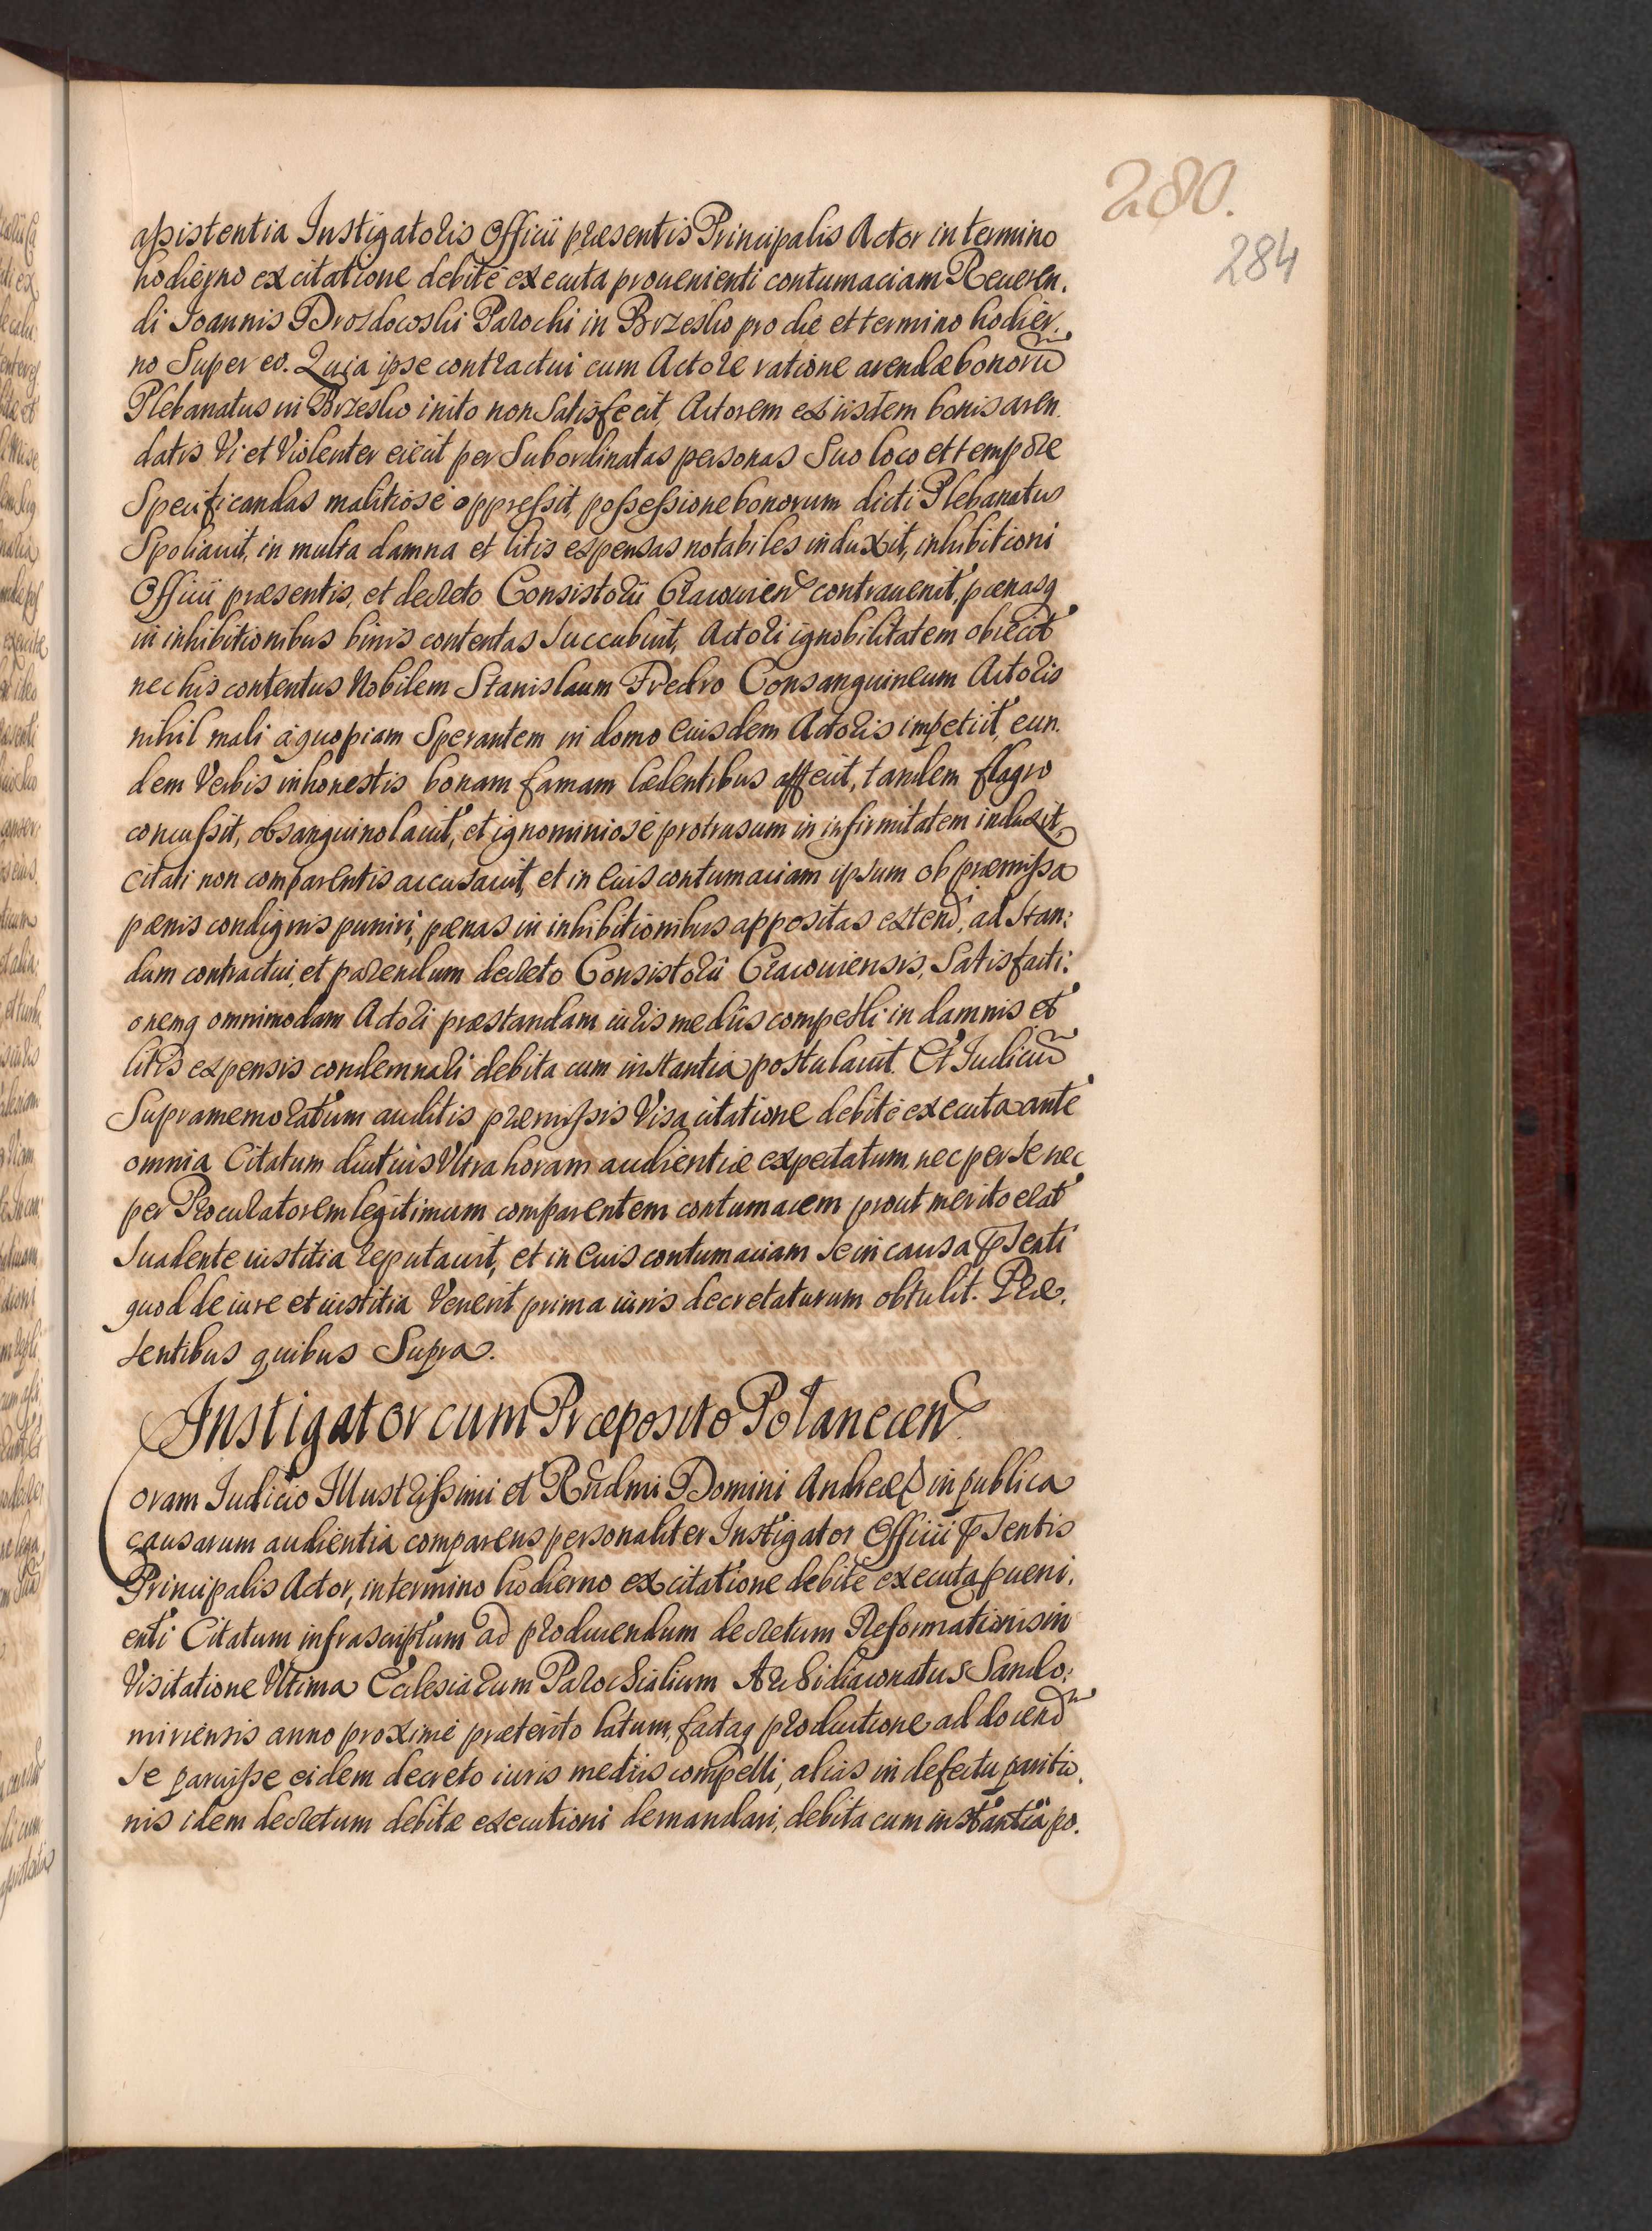 280.
284
assistentia Instigatoris Officii præsentis Principalis Actor in termino
hodierno ex citatione debite executa prouenienti contumaciam Reueren.
di Joannis Drozdowski Parochi in Brzesko pro die et termino hodier.
no Super eo. Quia ipse contractui cum Actore ratione arendæ bonorũ
Plebanatus in Brzesko inito non Satisfecit, Actorem ex iisdem bonis aren
datis Vi et Violenter eiecit per Subordinatas personas Suo loco et tempore
Specificandas malitiosè oppressit, possessione bonorum dicti Plebanatus
Spoliauit, in multa damna et litis expensas notabiles induxit, inhibitioni
Officii præsentis, et decreto Consistorii Cracouien contrauenit, pœnasq
in inhibitionibus binis contentas Succubuit, Actori ignobilitatem obiecit
nec his contentus Nobilem Stanislaum Fredro Consanguineum Actoris
nihil mali à quopiam Sperantem in domo Eiusdem Actoris impetiit, eun.
dem Verbis inhonestis bonam famam lædentibus affecit, tandem flagro
concussit, obsanguinolauit, et ignominiosè protrusum in infirmitatem induxit,
citati non comparentis accusauit, et in Eius contumaciam ipsum ob præmissa
pœnis condignis puniri, pœnas in inhibitionibus appositas extend, ad Stan:
dum contractui, et parendum decreto Consistorii Cracouiensis, Satisfacti:
onemq omnimodam Actori præstandam iuris mediis compelli in damnis et
litis expensis condemnari debita cum instantia postulauit. Et Iudiciũ
Supramemoratum auditis præmissis Visa citatione debitè executa ante
omnia Citatum diutius Vltra horam audientiæ expectatum, nec per Se nec
per Procuratorem legitimum comparentem contumacem prout merito erat
Suadente iustitia reputauit, et in Eius contumaciam Se in causa pñsenti
quod de iure et iustitia Venerit prima iuris decretaturum obtulit. Præ.
sentibus quibus Supra.
Instigator cum Præposito Polanecen
Coram Iudicio Illustrissimi et Rñdmi Domini Andreæ in publica
causarum audientia comparens personaliter Instigator Officii pñsentis
Principalis Actor, in termino hodierno ex citatione debitè executa pueni.
enti Citatum infrascriptum ad producendum decretum Reformationis in
Visitatione Vltima Ecclesiarum Parochialium Archidiaconatus Sando:
miriensis anno proximè præterito latum, factaq productione ad docend
Se paruisse eidem decreto iuris mediis compelli, alias in defectu paritio.
nis idem decretum debitæ executioni demandari, debita cum instantia po.